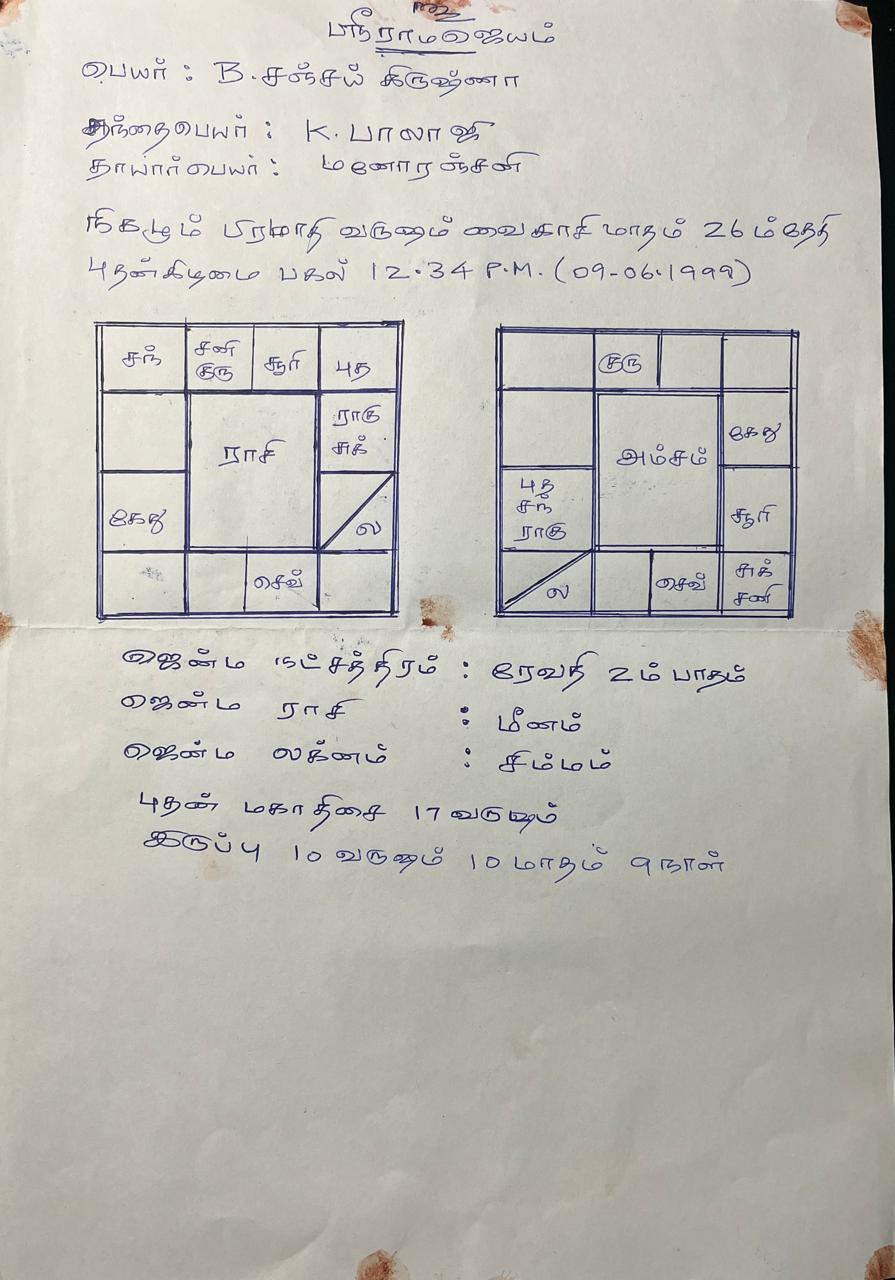 ஸ்ரீராமஜெயம்
பெயர் : B. சஞ்சய் கிருஷ்ணா
தந்தைபெயர் : K. பாலாஜி
தாயார்பெயர் : மனோரஞ்சனி
நிகழும் பிரமாதி வருஷம் வைகாசி மாதம் 26 ம் தேதி
புதன்கிழமை பகல் 12.34 P.M. (09-06-1999)
சந் சனி குரு சூரி புத
ராகு சுக்
ராசி
கேது ல
செவ்
குரு
கேது
அம்சம்
புத சந் ராகு சூரி
ல செவ் சுக் சனி
ஜென்ம நட்சத்திரம் : ரேவதி 2ம் பாதம்
ஜென்ம ராசி : மீனம்
ஜென்ம லக்னம் : சிம்மம்
புதன் மகாதிசை 17 வருஷம்
இருப்பு 10 வருஷம் 10 மாதம் 9 நாள்